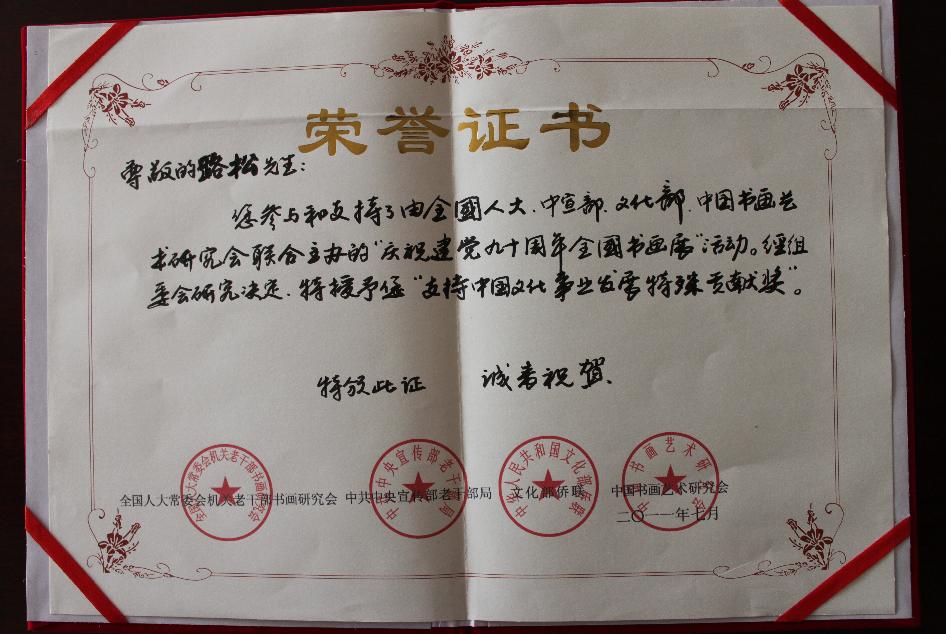 荣誉证书
尊敬的路松先生：
您参与和支持了由全國人大、中宣部、文化部、中国书画艺
术研究会联合主办的“庆祝建党九十周年全國书画展”活动。经组
委会研究决定，特授予您“支持中國文化事业发展特殊贡献奖”。
特颁此证 诚者祝贺、
全国人大常委会机关老干部书画研究会 中共中央宣传部老干部局 文化部侨联 中国书画艺术研究会
二〇一一年七月